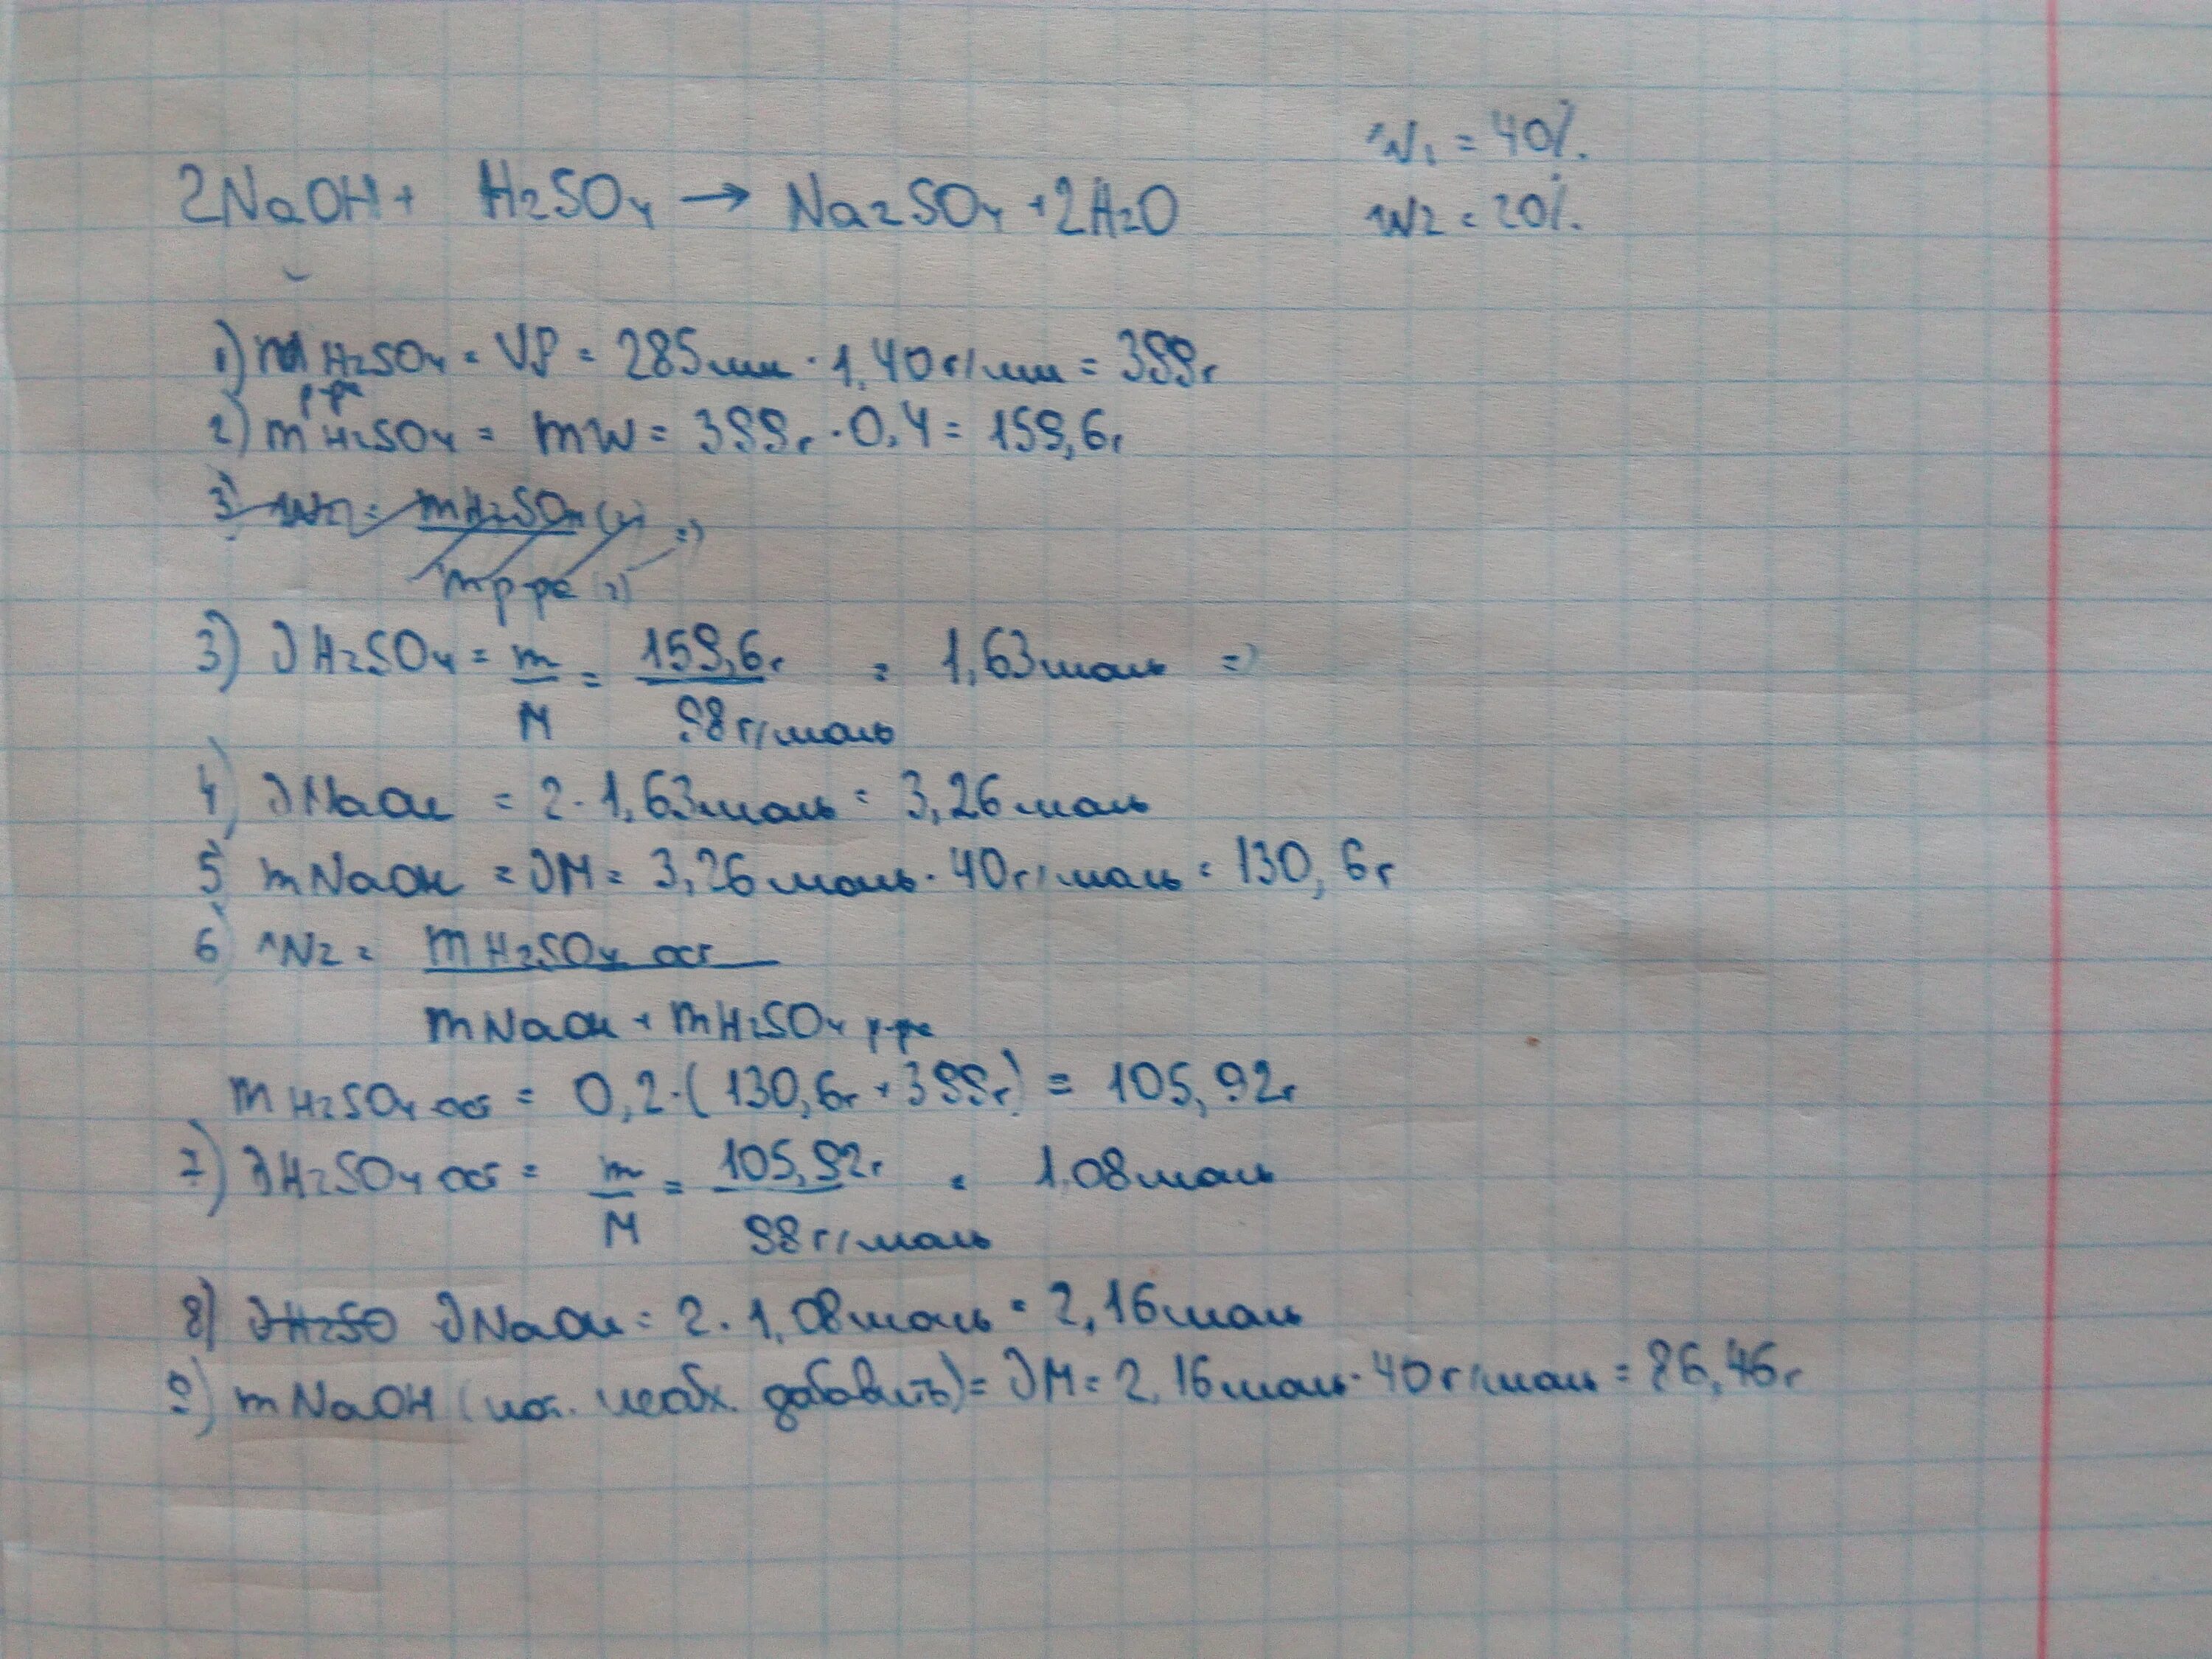 2NaOH + H2SO4 → Na2SO4 + 2H2O
W1 = 40%.
W2 = 20%.
1) m H2SO4 р-ра = Vρ = 285мл · 1,40г/мл = 399г
2) m H2SO4 = mw = 399г · 0,4 = 159,6г
3) W2 = m H2SO4 (2) / m р-ра (2) =>
3) ν H2SO4 = m/M = 159,6г / 98г/моль = 1,63моль =>
4) ν NaOH = 2 · 1,63моль = 3,26моль
5) m NaOH = νM = 3,26моль · 40г/моль = 130,6г
6) W2 = m H2SO4 ост / m NaOH + m H2SO4 р-ра
m H2SO4 ост = 0,2 · (130,6г + 399г) = 105,92г
7) ν H2SO4 ост = m/M = 105,92г / 98г/моль = 1,08моль
8) νH2SO ν NaOH = 2 · 1,08моль = 2,16моль
9) m NaOH (необх. добавить) = νM = 2,16моль · 40г/моль = 86,46г